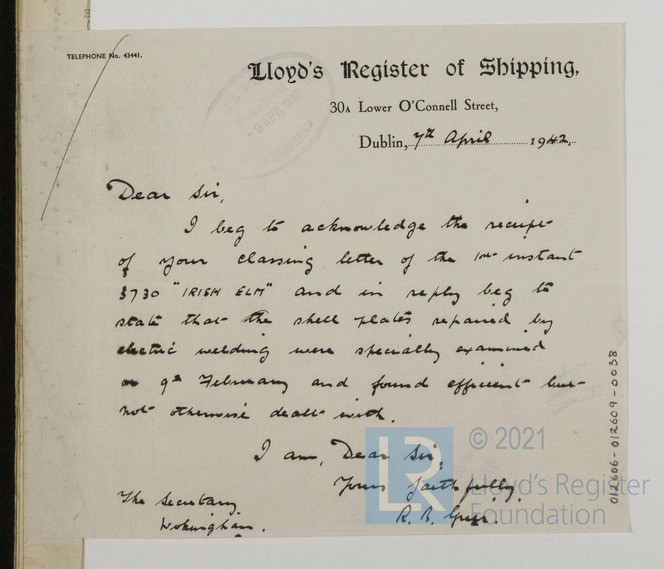 TELEPHONE No. 43441.
Lloyd's Register of Shipping,
30A Lower O'Connell Street,
Dublin, 7th April 1942.
9 APR 1942
Dear Sir,
I beg to acknowledge the receipt
of your classing letter of the 1st instant
3730 "IRISH ELM" and in reply beg to
state that the shell plates repaired by
electric welding were specially examined
on 9th February and found efficient but
not otherwise dealt with.
I am, Dear Sir,
Yours faithfully,
R. R.
The Secretary,
Wokingham.
012606-012609-0038
LR
© 2021
Lloyd's Register
Foundation